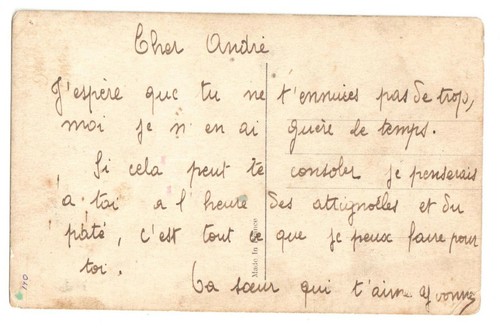 Cher André
J'espère que tu ne t'ennuies pas de trop,
moi je n'en ai guère le temps.
Si cela peut te consoler je penserais
a toi a l'heure des attignolles et du
pâté, c'est tout ce que je peux faire pour
toi.
Ta sœur qui t'aime Yvonne
Made in France